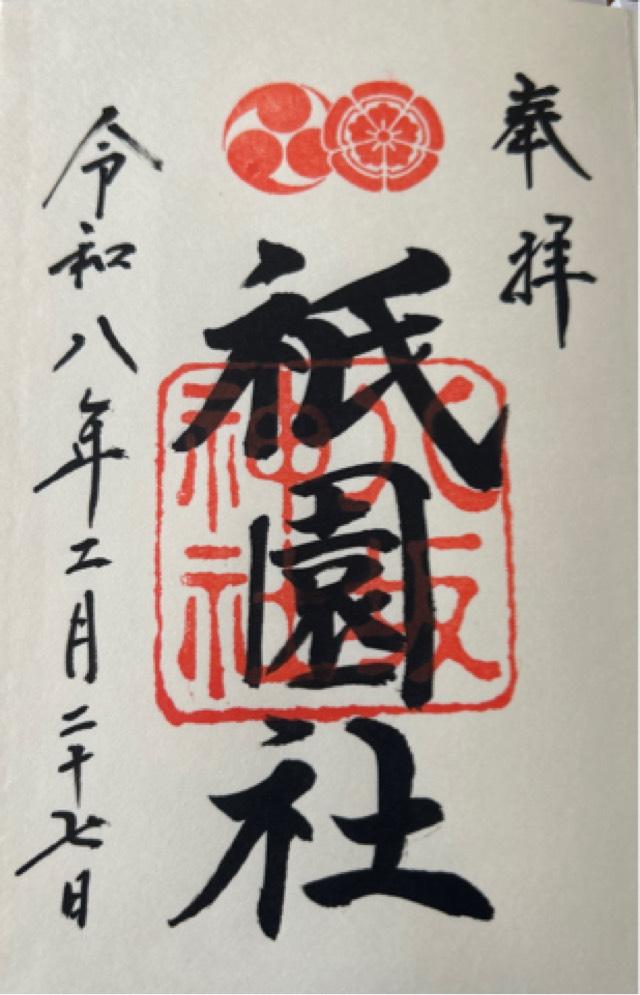 奉拝
祇園社
八坂
神社
令和八年二月二十七日